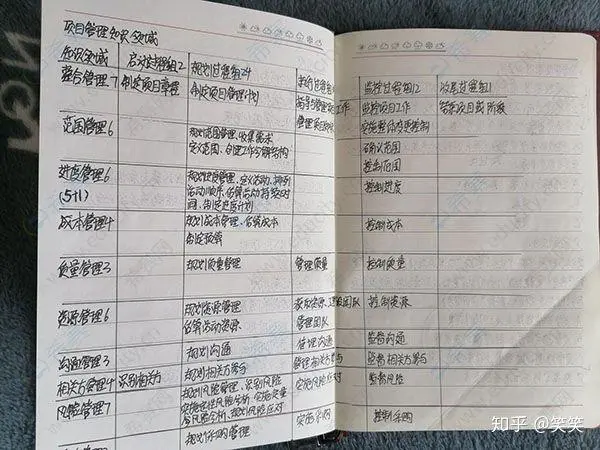 项目管理知识领域
知识领域 启动过程组2 规划过程组24 执行过程组 监控过程组12 收尾过程组1
整合管理7 制定项目章程 制定项目管理计划 指导与管理项目工作 监控项目工作 结束项目或阶段
管理项目知识 实施整体变更控制
范围管理6 规划范围管理、收集需求 确认范围
定义范围、创建工作分解结构 控制范围
进度管理6 规划进度管理、定义活动、排列 控制进度
(5+1) 活动顺序、估算活动持续时
间、制定进度计划
成本管理4 规划成本管理、估算成本 控制成本
制定预算
质量管理3 规划质量管理 管理质量 控制质量
资源管理6 规划资源管理 获取资源、建设团队 控制资源
估算活动资源 管理团队
沟通管理3 规划沟通 管理沟通 监督沟通
相关方管理4 识别相关方 规划相关方参与 管理相关方参与 监督相关方参与
风险管理7 规划风险管理、识别风险 实施风险应对 监督风险
实施定性风险分析、实施定量
风险分析、规划风险应对
规划采购管理 实施采购 控制采购
知乎 @笑笑